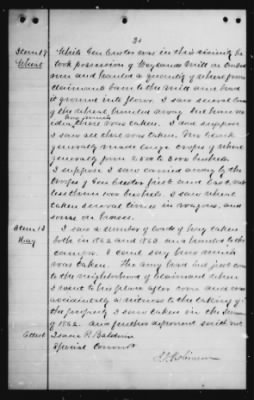 Item 17
Wheat
While Gen Custer was in this vicinity he
took possession of Weylands Mill an
men and hauled a quantity of wheat from
claimants barn to the mill and had
it ground into flour. I saw several
of the wheat hauled away but have no
idea how much there was taken. I do not suppose
I saw all that was taken. Mr
generally made large crops of wheat
generally from 2000 to 2500 bushels
I suppose I saw carried away by the
troops of Gen Custer first and last not
less than 100 bushels. I saw wheat
taken several times in wagons, and
some on horses.
Item 18
Hay
I saw a number of loads of hay taken
both in 1862 and 1863 and hauled to the
camps. I cant say how much
was taken. The army had just come
to the neighborhood of claimant when
I went to his place after some and
accidentally a witness to the taking of
the property I saw taken in the
of 1862. And further deponent saith not
Attest
Isaac P. Baldwin
Special Commr
Robinson